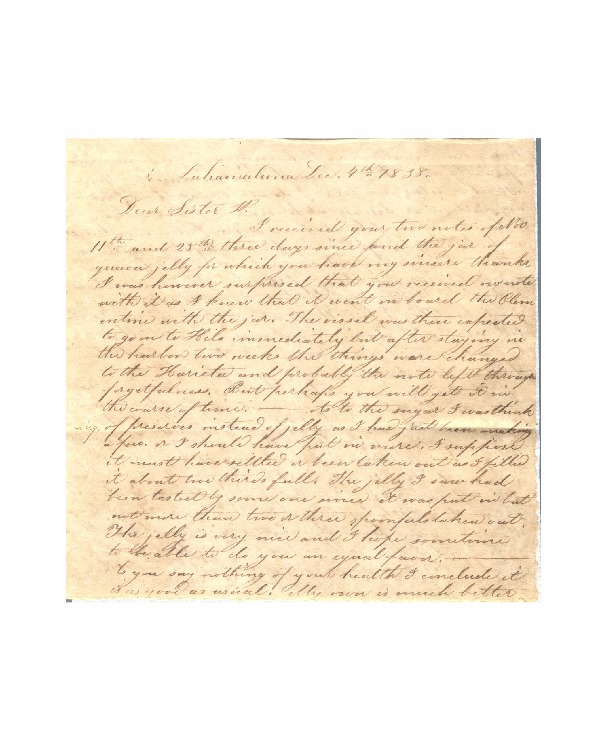 Lahainaluna Dec. 4th 1838.
Dear Sister W.
I received your two notes of Nov.
11th and 23th three days since and the jar of
guava jelly for which you have my sincere thanks
I was however surprised that you received no note
with it as I knew that it went on board the Clem
entine with the jar. The vessel was then expected
to go on to Hilo immediately but after staying in
the harbor two weeks the things were changed
to the Harieta and probably the note left through
forgetfulness. But perhaps you will get it in
the course of time. — As to the sugar I was think
ing of preserves instead of jelly as I had just been making
a few. or I should have put in more. I suppose
it must have settled or been taken out as I filled
it about two thirds full. The jelly I saw had
been tasted by some one since it was put in but
not more than two or three spoonfuls taken out.
The jelly is very nice and I hope sometime
to be able to do you an equal favor. —
you say nothing of your health I conclude it
is as good as usual. My own is much better